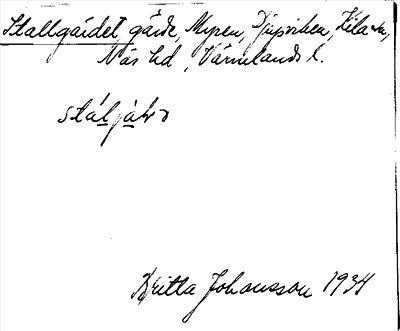 Stallgärdet, gärde, Myren, Djupviken, Kila sn,
Näs hd, Värmlands l.
stáljàḷə
Britta Johansson 1934